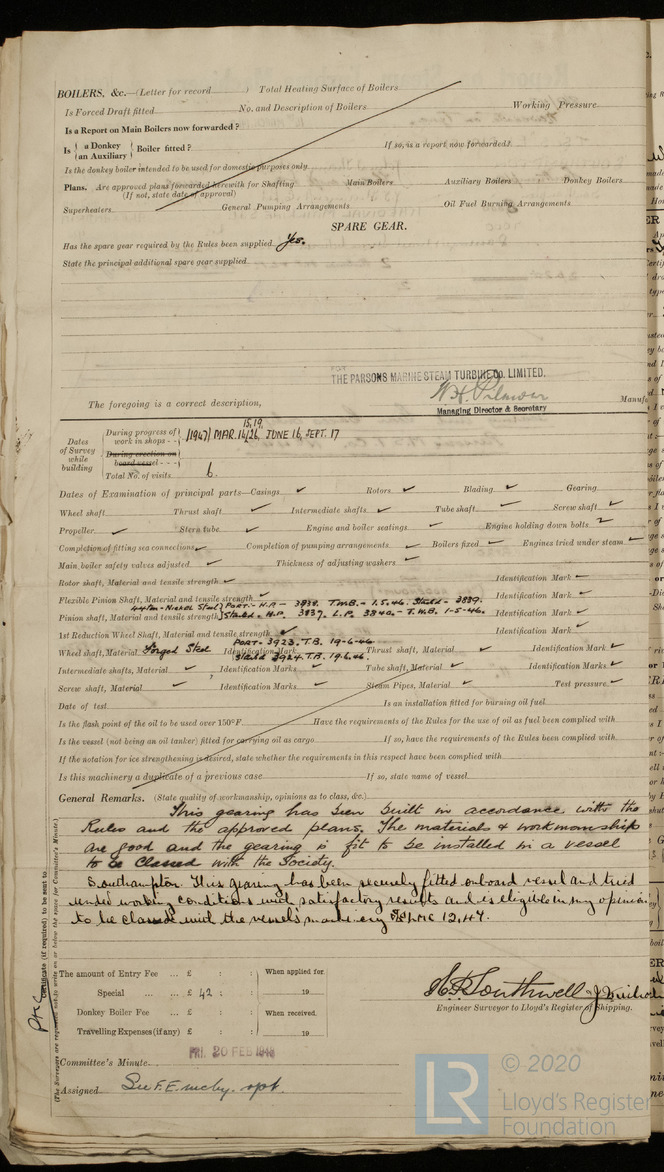 BOILERS, &c.—(Letter for record ) Total Heating Surface of Boilers
Is Forced Draft fitted No. and Description of Boilers Working Pressure
Is a Report on Main Boilers now forwarded?
Is { a Donkey / an Auxiliary } Boiler fitted? If so, is a report now forwarded?
Is the donkey boiler intended to be used for domestic purposes only
Plans. Are approved plans forwarded herewith for Shafting Main Boilers Auxiliary Boilers Donkey Boilers
(If not, state date of approval)
Superheaters General Pumping Arrangements Oil Fuel Burning Arrangements
SPARE GEAR.
Has the spare gear required by the Rules been supplied Yes.
State the principal additional spare gear supplied
THE PARSONS MARINE STEAM TURBINE CO. LIMITED.
The foregoing is a correct description, Manufa
Managing Director & Secretary
Dates of Survey while building
During progress of work in shops - - (1947) MAR. 14, 15, 19, 26, JUNE 16, SEPT. 17
During erection on board vessel - - -
Total No. of visits 6.
Dates of Examination of principal parts—Casings ✓ Rotors ✓ Blading ✓ Gearing
Wheel shaft Thrust shaft ✓ Intermediate shafts ✓ Tube shaft ✓ Screw shaft ✓
Propeller ✓ Stern tube ✓ Engine and boiler seatings ✓ Engine holding down bolts ✓
Completion of fitting sea connections ✓ Completion of pumping arrangements ✓ Boilers fixed ✓ Engines tried under steam ✓
Main boiler safety valves adjusted ✓ Thickness of adjusting washers ✓
Rotor shaft, Material and tensile strength ✓ Identification Mark ✓
Flexible Pinion Shaft, Material and tensile strength ✓ Identification Mark ✓
Nickel Steel PORT:- H.P.- 3938. T.W.B.- 1.5.46. Stard - 3839.
Pinion shaft, Material and tensile strength Starbd. H.P. 3837. L.P. 3840. T.W.B. 1-5-46. Identification Mark ✓
1st Reduction Wheel Shaft, Material and tensile strength ✓ Identification Mark ✓
PORT- 3923. T.B. 19-6-46.
Wheel shaft, Material Forged Steel Identification Mark Thrust shaft, Material ✓ Identification Mark ✓
Starbd 3924. T.B. 19.6.46.
Intermediate shafts, Material ✓ Identification Marks ✓ Tube shaft, Material ✓ Identification Marks ✓
Screw shaft, Material ✓ Identification Marks ✓ Steam Pipes, Material ✓ Test pressure ✓
Date of test Is an installation fitted for burning oil fuel
Is the flash point of the oil to be used over 150°F. Have the requirements of the Rules for the use of oil as fuel been complied with
Is the vessel (not being an oil tanker) fitted for carrying oil as cargo If so, have the requirements of the Rules been complied with
If the notation for ice strengthening is desired, state whether the requirements in this respect have been complied with
Is this machinery a duplicate of a previous case If so, state name of vessel
General Remarks. (State quality of workmanship, opinions as to class, &c.)
This gearing has been built in accordance with the
Rules and the approved plans. The materials & workmanship
are good and the gearing is fit to be installed in a vessel
to be classed with the Society.
Southampton. This gearing has been securely fitted onboard vessel and tried
under working conditions with satisfactory results and is eligible in my opinion
to be classed with the vessel's machinery LMC 12,47.
The amount of Entry Fee ... £ : : When applied for
Special ... ... £ 42 : : 19
Donkey Boiler Fee ... £ : : When received.
Travelling Expenses (if any) £ : : 19
Engineer Surveyor to Lloyd's Register of Shipping.
Committee's Minute FRI. 20 FEB 1948
Assigned See F.E. mchy. rpt.
Certificate (if required) to be sent to
(The Surveyors are requested not to write on or below the space for Committee's Minute.)
© 2020
LR
Lloyd's Register
Foundation